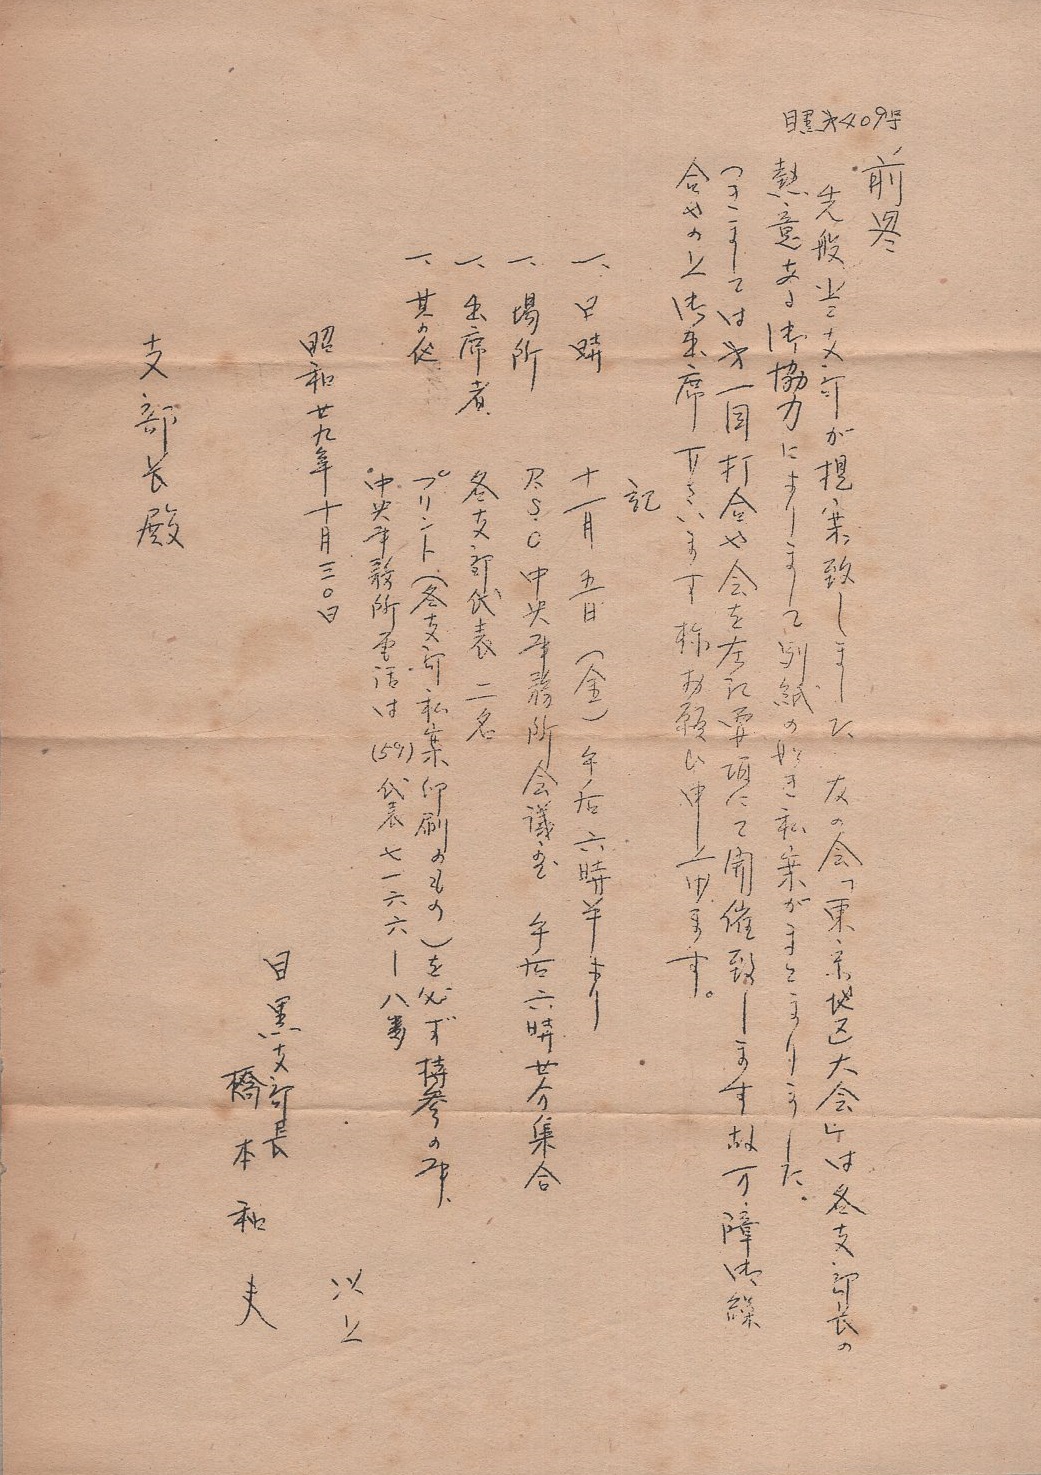 目黒才409号
前畧
先般当支部が提案致しました友の会「東京地区大会」は各支部長の
熱意ある御協力によりまして別紙の如き私案がまとまりました。
つきましては才一回打合せ会を左記要項にて開催致します故万障御繰
合せの上御出席下さいます様お願ひ申し上げます。
記
一、日時 十一月五日(金)午后六時半より
一、場所 R.S.C中央事務所会議室 午后六時廿分集合
一、出席者 各支部代表二名
一、其の他 プリント(各支部私案印刷のもの)を必ず持参の事、
中央事務所電話は(59)代表七一六六―八番
以上
昭和廿九年十月三〇日
目黒支部長
橋本和夫
支部長殿